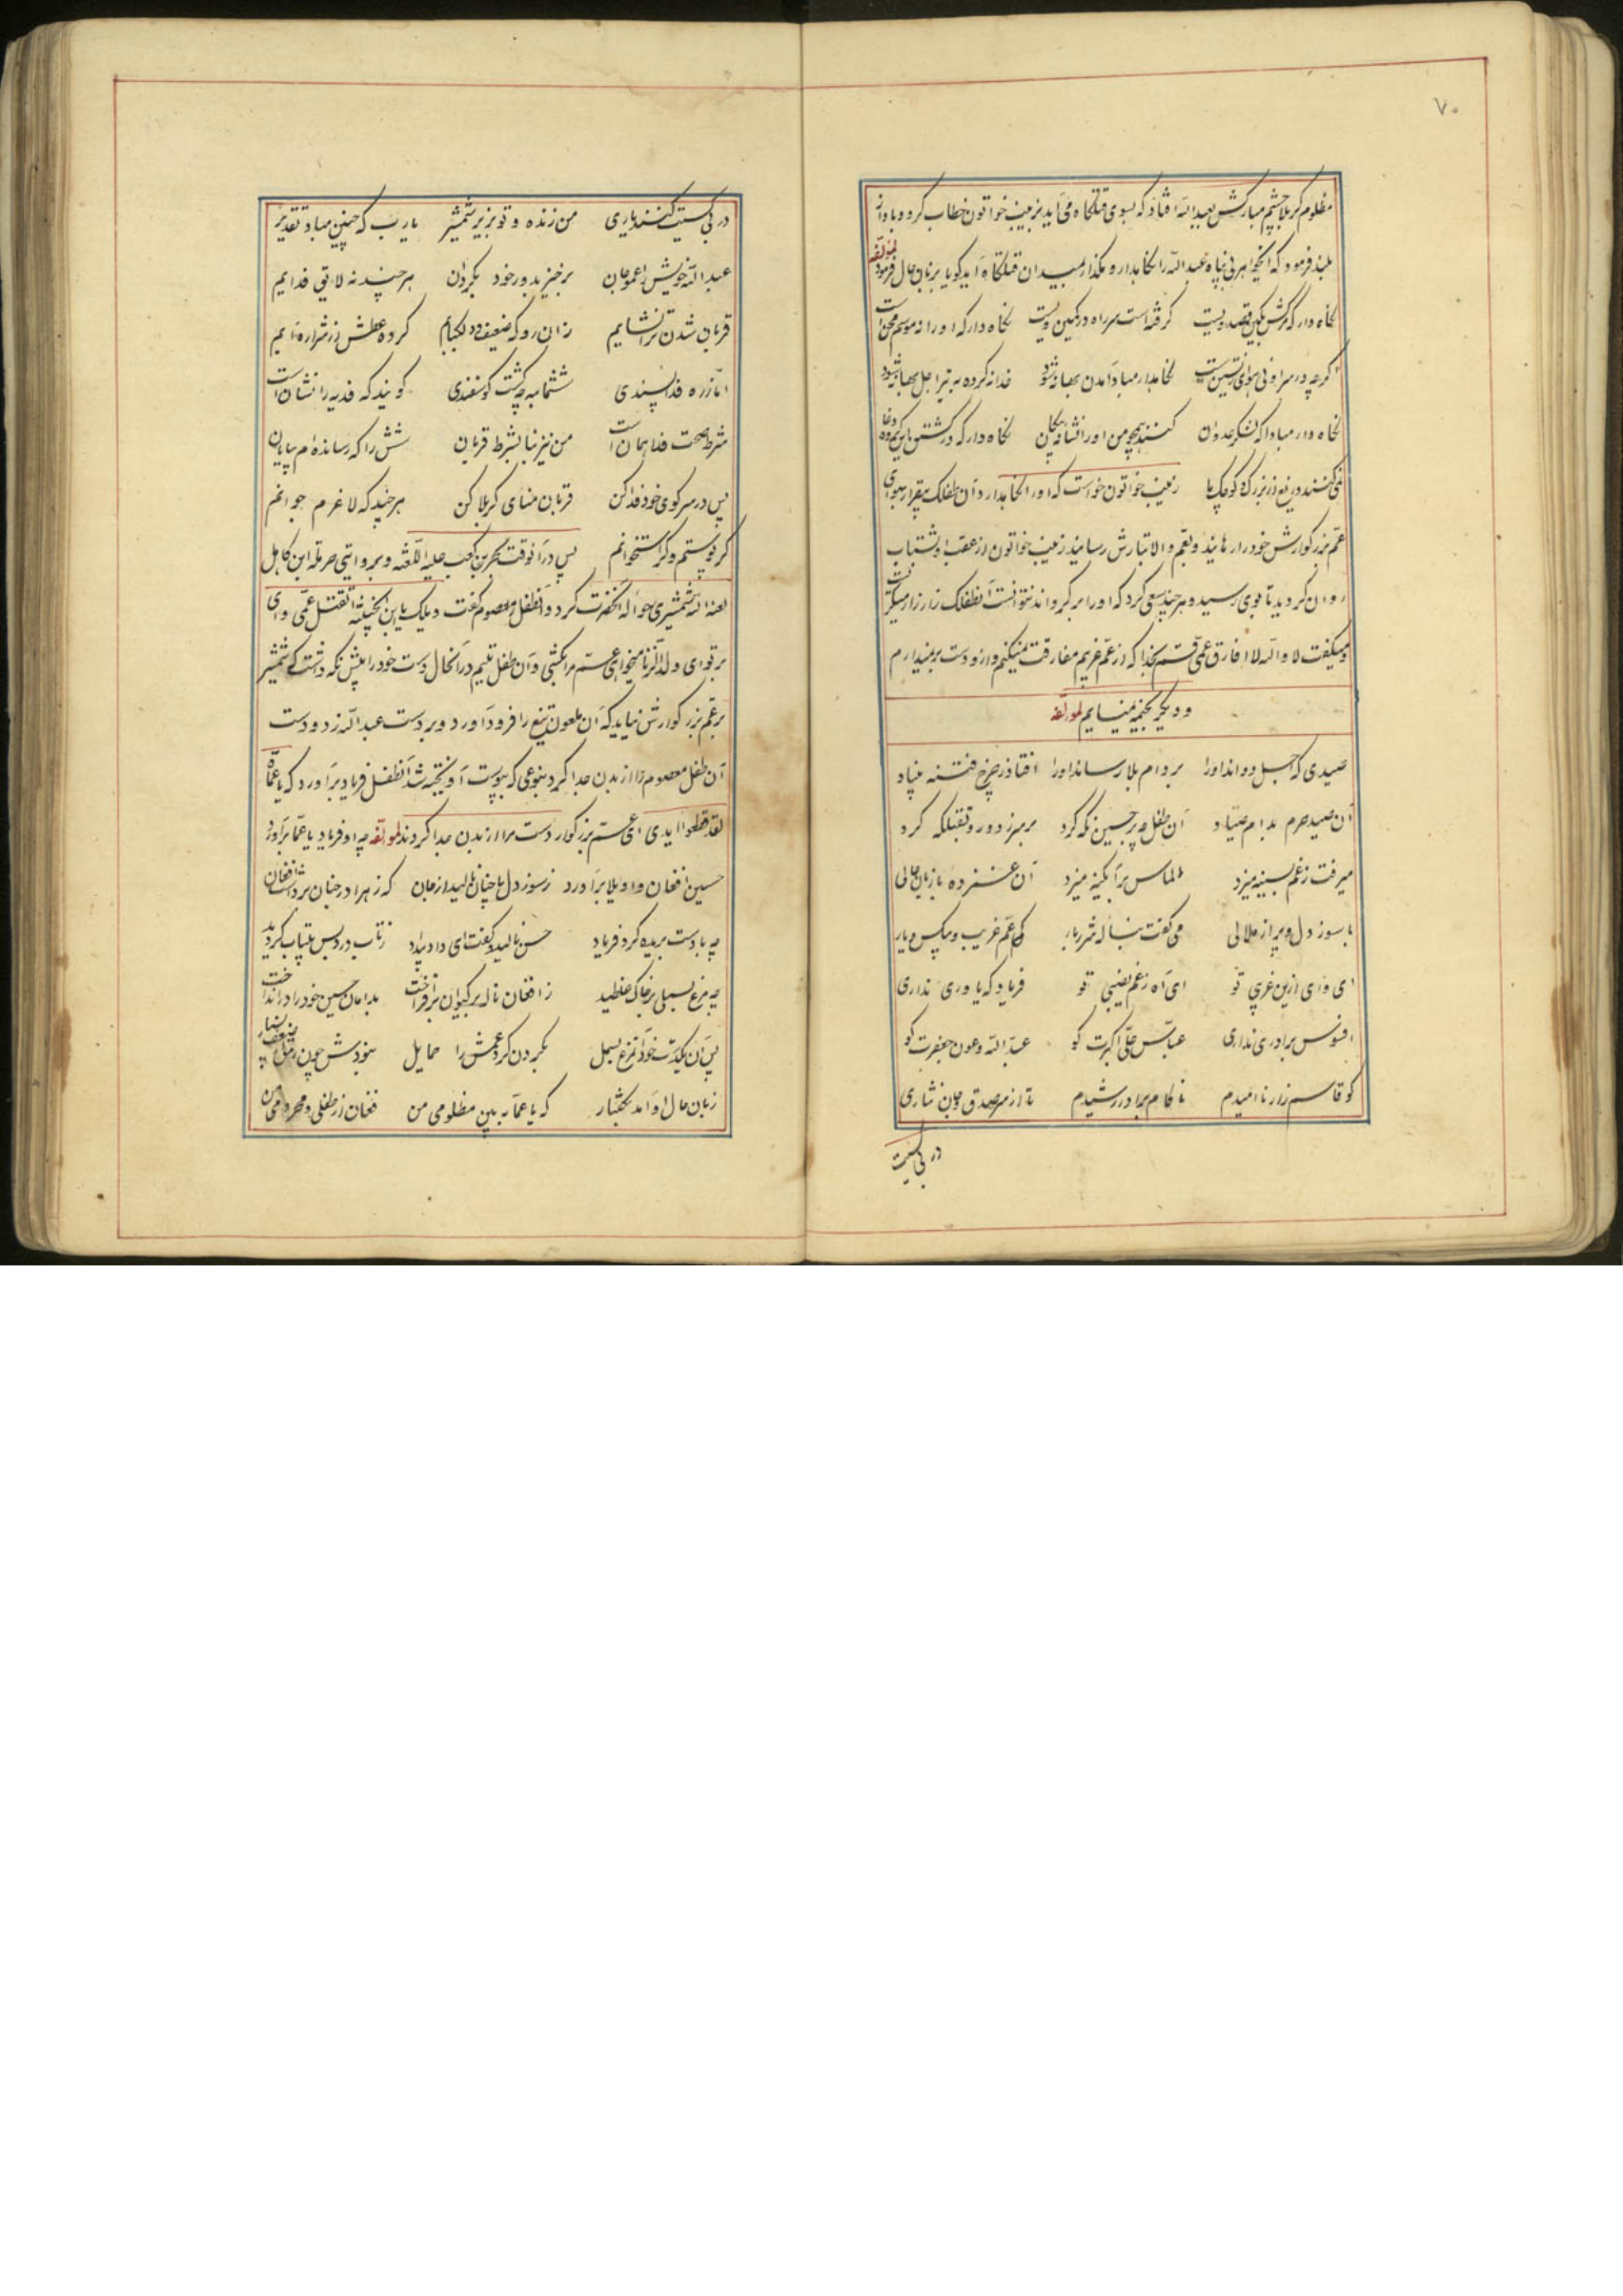 ۷۰
مظلوم کربلا چشم مبارکش بعبدالله افتاد که بسوی قتلگاه می‌آید بزینب خواتون خطاب کرد و باواز
بلند فرمود که ایخواهر بی پناه عبدالله را نگاهدار و مگذار بمیدان قتلگاه آید کویا بزبان حال فرمود لمؤلفه
نکاه دار که گرفته است سر راه در کمین نکاه دار که اورا نه موسم
اگرچه در سر او نگاهدار مبادا آمدن بهانه شود فدا نکرده به تیر اجل شود
نکاه دار مبادا که لشکر عدوان کنند همچو من اورا نشانه پیکان نکاه دار که در کشتن
نمی کنند دریغ از بزرگ و کوچک ما زینب خواتون خواست که اورا نگاهدارد آن طفلک بیقرار بهوای
عم بزرکوارش خود را رهانید و بعم والا تبارش رسانید زینب خواتون از عقب او بشتاب
روان کردید تا بوی رسید و هرچند سعی کرد که اورا برگرداند نتوانست آنطفلک زار زار میگریست
و میگفت لا والله لا افارق عمی قسم بخدا که از عم غریبم مفارقت نمیکنم و از او دست برنمیدارم
و دیگر لمؤلفه
صیدی که اجل دواند اورا بر دام بلا رساند اورا افتاد ز چرخ فتنه بنیاد
آن صید حرم بدام صیاد آن طفل چو بر حسین نگه کرد بر سر زد و رو بقتلگه کرد
میرفت ز غم بسینه میزد الماس بر آبگینه میزد آن غمزده با زبان حالی
با سوز دل و پر از ملالی می گفت بناله شرربار کی عم غریب و بیکس و یار
ای وای ازین غریبی تو ای آه ز غم نصیبی تو فریاد که یاوری نداری
افسوس برادری نداری عباس علی اکبرت کو عبدالله و عون جعفرت کو
کو قاسم زار نا امیدم ناکام برادر رشیدم تا از سر صدق جان نثاری
در بی کسیت
در بی کسیت کنند یاری من زنده و تو بزیر شمشیر یارب که چنین مباد تقدیر
عبدالله خویش را عموجان برخیز بدور خود بگردان هرچند نه لایق فدایم
قربان شدن ترا نشایم زان رو که ضعیف کرده عطش از شراره آیم
اما ز ره فدا پسندی ششماهه چه گشت کوسفندی کویند که فدیه را نشان است
شرط صحت فدا همان است من نیز بنا بشرط قربان شش را که رسانده‌ام بپایان
پس در سر کوی خود فدا کن قربان منای کربلا کن هرچند که لاغرم جوانم
گر پوستم و گر استخوانم پس در آنوقت بحر بن کعب علیه اللعنه و بروایتی حرمله ابن کاهل
لعنه الله شمشیری حواله آنحضرت کرد و آنطفل معصوم گفت ویلک یا ابن الخبیثه اتقتل عمی وای
بر تو ای ولد الزنا میخواهی عم مرا بکشی و آن طفل یتیم در آنحال دست خود را پیش نگه داشت که شمشیر
بر عم بزرگوارش نیاید که آن ملعون تیغ را فرود آورد و بر دست عبدالله زد و دست
آن طفل معصوم را از بدن جدا کرد بنوعی که بپوست آویخته شد آنطفل فریاد برآورد که یا عماه
لقد قطعوا ایدی ای عم بزرگوار دست مرا از بدن جدا کردند لمؤلفه چه او فریاد یا عما برآورد
حسین افغان و اویلا برآورد ز سوز دل چنان نالید از جان که زهرا در جنان برداشت افغان
چه با دست بریده کرد فریاد حسن نالید گفت ای داد بیداد ز تاب درد بس بیتاب گردید
چه مرغ بسملی بر خاک غلطید ز افغان ناله بر کیوان برافراخت بدامان حسین خود را در انداخت
پس آن یکدست خود آن مرغ بسمل بگردن کرد عمش را حمایل
زبان حال او آمد بگفتار که یا عماه ببین مظلومی من فغان از طفلی و محرومی من